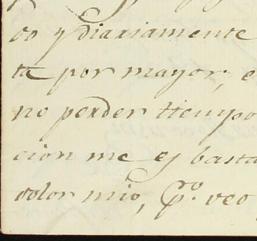 do y diariamente
te por mayor, e
no perder tiempo
cion me es basta
dolor mio, Po. veo